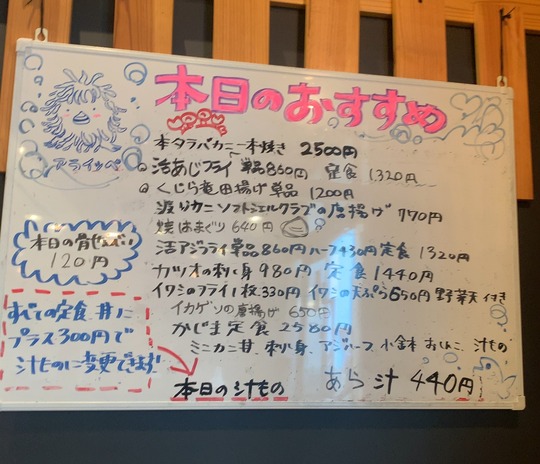 本日のおすすめ
アライッペ
本タラバカニ一本焼き 2500円
活あじフライ 単品860円 定食 1320円
くじら竜田揚げ単品 1200円
渡りカニソフトシェルクラブの唐揚げ 770円
焼はまぐり 640円
活アジフライ単品860円ハーフ430円定食 1320円
カツオの刺し身 980円 定食 1440円
イワシのフライ1枚330円 イワシの天ぷら650円 野菜天付き
イカゲソの唐揚げ 650円
かじま定食 2580円
ミニカニ丼、刺し身、アジハーフ、小鉢、おしんこ、汁もの
本日の骨せんべい
120円
すべての定食、丼に
プラス300円で
汁ものに変更できます!
本日の汁もの あら汁 440円